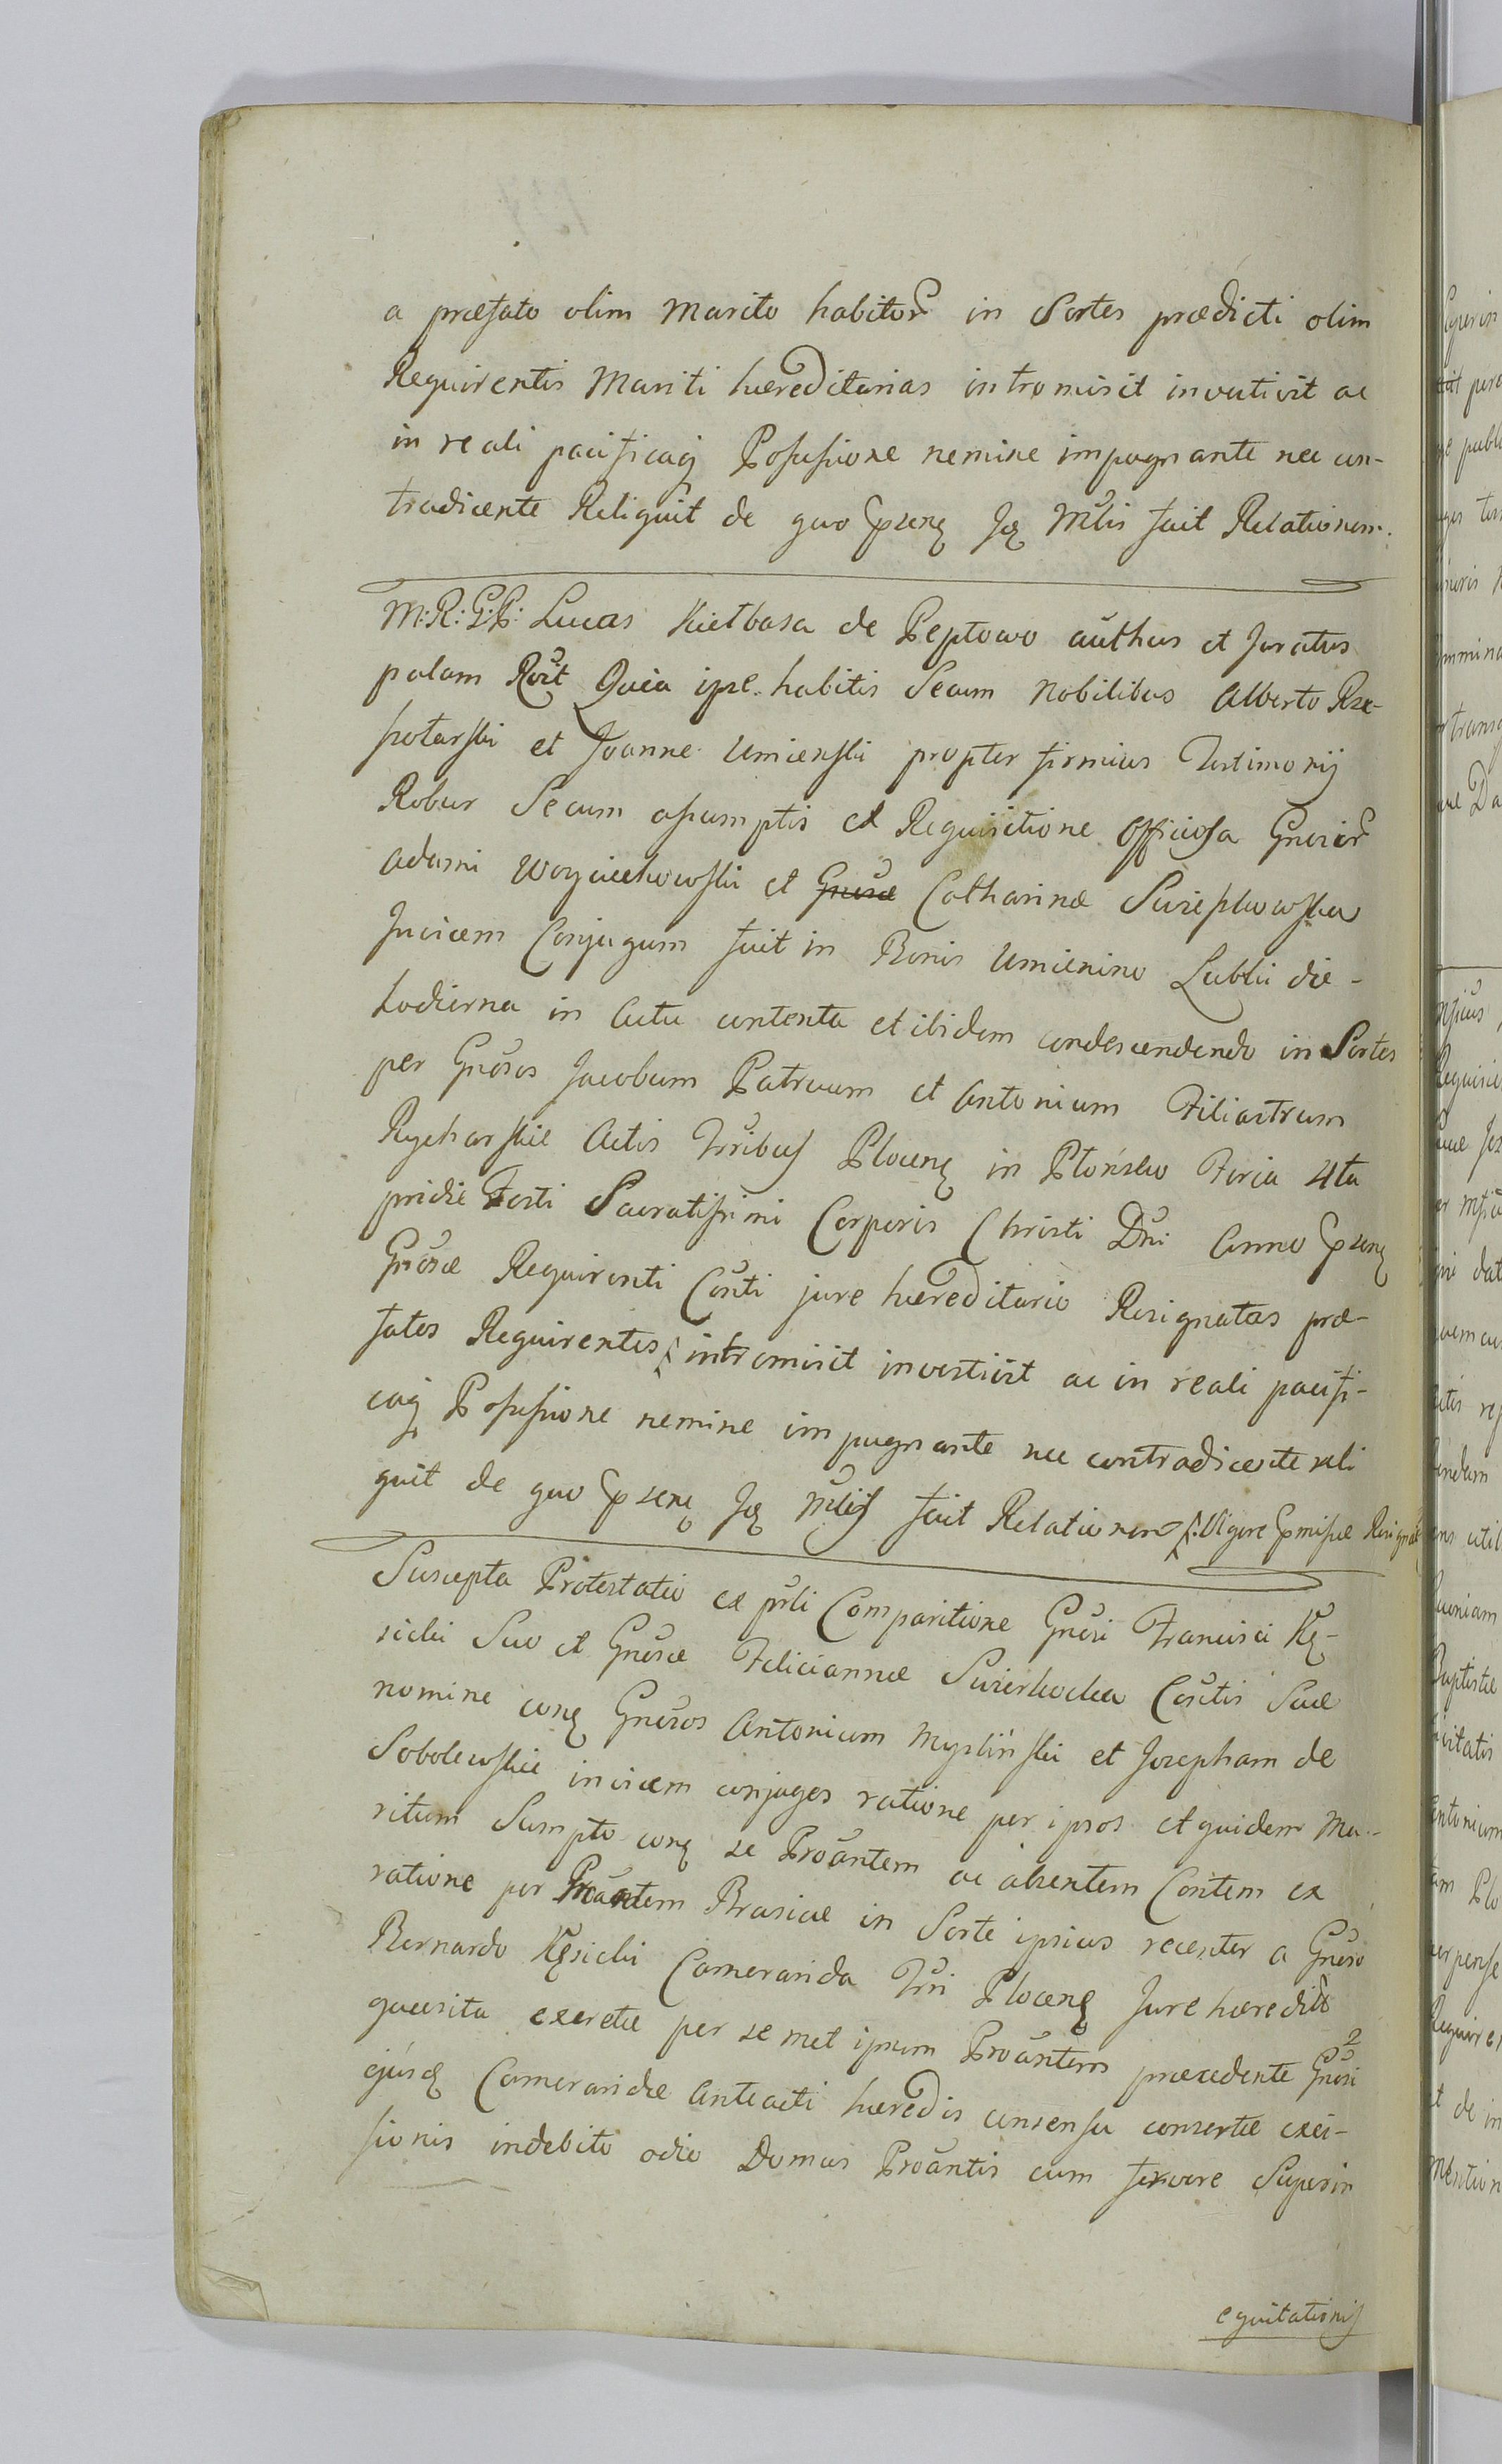 a præfato olim Marito habitor in Sortes prædicti olim
Requirentis Mariti hæreditarias intromisit investivit ac
in reali pacificaq Possessione nemine impugnante nec con-
tradicente Reliquit de quo præsens Jq Mtlis fecit Relationem.
M: R: G: P: Lucas Kiełbasa de Peptowo authus et Juratus
palam Rcit Quia ipse habitis Secum Nobilibus Alberto Rze-
szotarski et Joanne Umienski propter firmius Testimonij
Robur Secum assumptis et Requisitione officiosa Gnosor
Adami Woyciechowski et Gnosæ Catharinæ Swieszkowska
Invicem Conjugum fuit in Bonis Umienino Łubki die-
hodierna in Actu contenta et ibidem condescendendo in Sortes
per Gnosos Jacobum Patruum et Antonium Filiastrum
Rycharskie Actis Trribus Plocens in Płońsko Feria 4ta
pridie Festi Sacratissimi Corporis Christi Dni Anno præsens
Gnosæ Requirenti Conti jure hæreditario Resignatas præ-
fatos Requirentes intromisit investivit ac in reali pacifi-
caq Possessione nemine impugnante nec contradicente reli
quit de quo præsens Jq Mtlis fecit Relationem Vigore præmissæ Resignat
Suscepta Protestatio ex prli Comparitione Gnosi Francisci Kę-
sicki Suo et Gnosæ Feliciannæ Swierkocka Contis Suæ
nomine conq Gnosos Antonium Myśliński et Josepham de
Sobolewskie invicem conjuges ratione per ipsos et quidem Ma-
ritum Sumpto conq se Proantem ac absentem Contem ex
ratione per Proantem Brasicæ in Sorte ipsius recenter a Gnoso
Bernardo Kęsicki Cameranda Trri Plocens Jure hæredit
quæsita exeretæ per semet ipsum Proantem præcedente Gnosi
ejusq Camerandæ Anteacti hæredis consensu consertæ exci-
sionis indebito odio Domus Proantis cum fervore Superin
equitationis